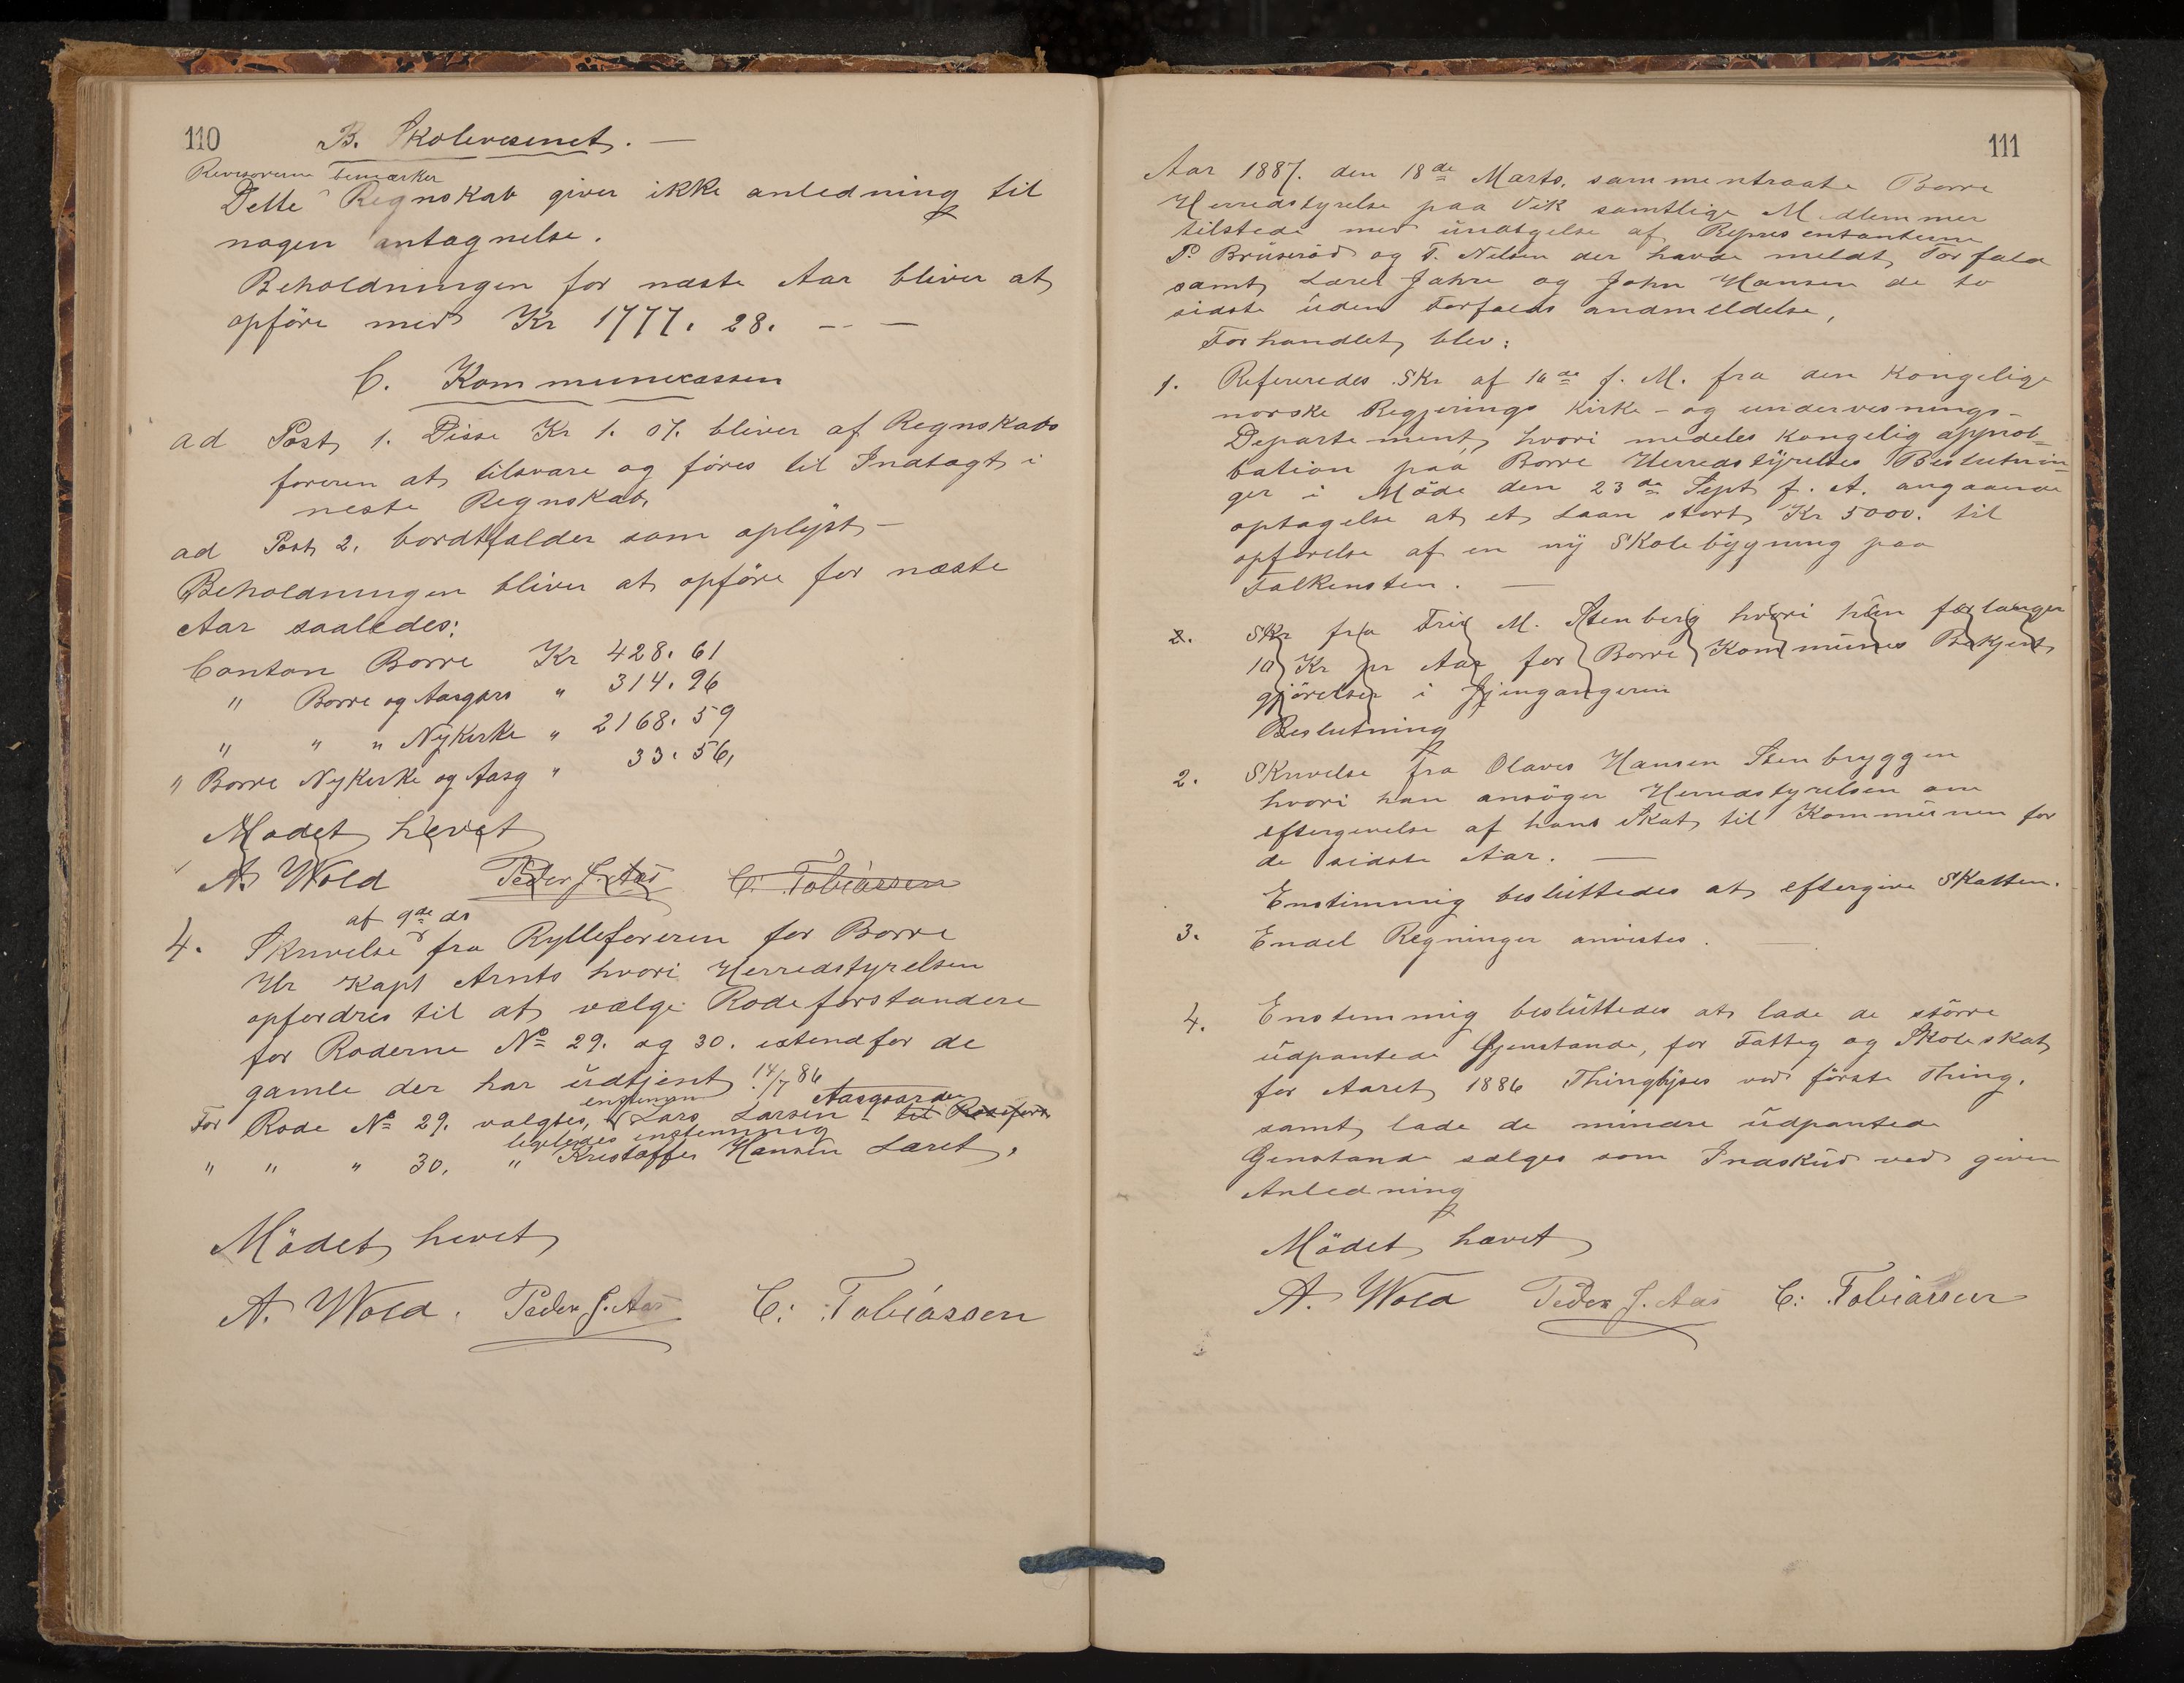 110
B. Skolevesenet. —
Revisorerne bemærker
Dette Regnskab giver ikke anledning til
nogen antagnelse.
Beholdningen for næste Aar bliver at
opföre med Kr 1777. 28. — —
C. Kommunecassen
ad Post 1. Disse Kr 1. 07. bliver af Regnskabs
föreren at tilsvare og föres til Indtægt i
neste Regnskab,
ad Post 2. bordtfalder som oplyst —
Beholdningen bliver at opföre for næste
Aar saaledes:
Conton Borre Kr 428. 61
" Borre og Aasgrs " 314. 96
" " " Nykirke " 2168. 59
" Borre Nykirke og Aasg " 33. 56,
Mödet hevet
A. Wold Peder J. Aas C: Tobiassen
af 9de ds
4. Skrivelse fra Rylleföreren for Borre
Hr Kapt Arnts hvori Herredstyrelsen
opfordres til at vælge Rodeforstandere
for Roderne No 29. og 30. istendfor de
gamle der har üdtjent 14/7 86
enstemmi Aasgaarden
For Rode No 29. valgtes, Lars Larsen - til Rodeforst
ligeledes enstemmig
" " " 30. " Kristoffer Hansen Læret.
Mödet hevet
A. Wold. Peder J. Aas C: Tobiassen
111
Aar 1887. den 18de Marts. sammentraate Borre
Herredstyrelse paa Vik samtlige Medlemmer
tilstede med ündtgelse af Representanterne
P. Brüseröd og T. Nilsen der havde meldt Forfald
samt Lars Jahre og John Hansen de to
sidste üden Forfalds andmeldelse,
Forhandlet blev:
1. Refereredes Skr af 16de f. M. fra den Kongelige
norske Regjerings Kirke- og undervesnings-
Departement, hvori medeles Kongelig approb-
bation paa Borre Herredstyrelses Beslutnin-
ger i Möde den 23de Sept f. A. angaaende
optagelse at et Laan stort Kr 5000. til
opförelse af en ny Skolebygning paa
Falkensten. —
2. Skr fra Frie M. Stenberg hvori hun forlanger
10 Kr pr Aar for Borre Kommünes Bekjent
gjörelser i Gjengangeren
Beslutning
2. Skrivelse fra Olaves Hansen Stenbryggen
hvori han ansöger Herredstyrelsen om
eftergevelse af hans Skat til Kommünen for
de sidste Aar. —
Enstimmig beslüttedes at eftergive Skatten.
3. Endel Regninger anvistes. —
4. Enstemmig beslüttedes at lade de större
üdpantede Gjenstande, for Fatteg og Skoleskat
for Aaret 1886 Thinglyses ved förste Thing.
samt lade de mindre üdpantede
Genstande sælges som Indskud ved given
Anledning
Mödet hævet
A. Wold Peder J. Aas C: Tobiassen